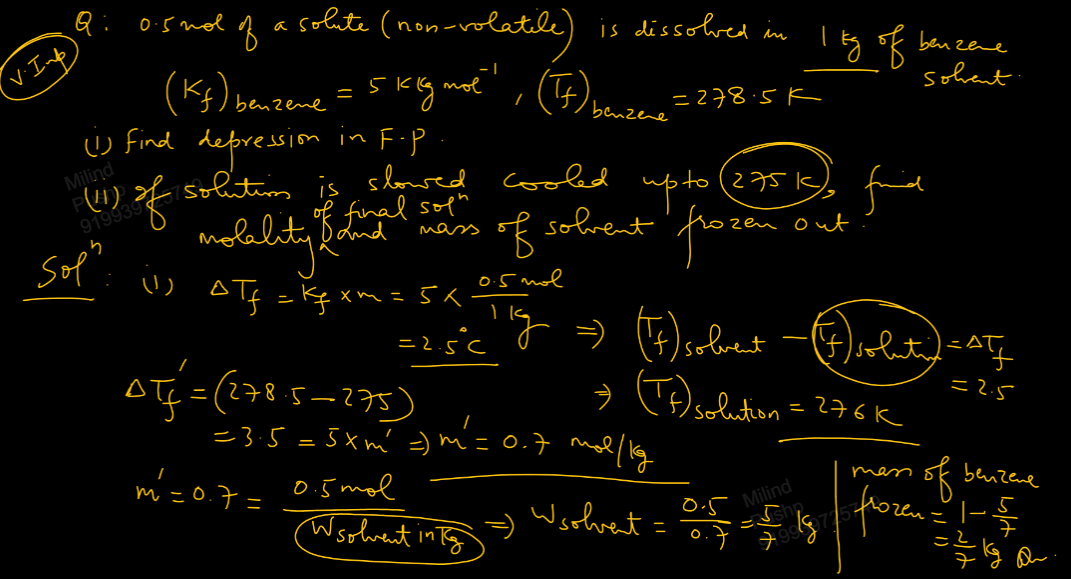 V. Imp
Q: 0.5 mol of a solute (non-volatile) is dissolved in 1 kg of benzene solvent.
(Kf)benzene = 5 K kg mol⁻¹, (Tf)benzene = 278.5 K
(i) Find depression in F.P.
(ii) If solution is slowed cooled upto 275 K, find
molality of final solⁿ and mass of solvent frozen out.
Solⁿ: (i) ΔTf = Kf × m = 5 × 0.5 mol / 1 kg
= 2.5°C ⇒ (Tf)solvent − (Tf)solution = ΔTf
= 2.5
⇒ (Tf)solution = 276 K
ΔTf' = (278.5 − 275)
= 3.5 = 5 × m' ⇒ m' = 0.7 mol/kg
m' = 0.7 = 0.5 mol / Wsolvent in kg ⇒ Wsolvent = 0.5/0.7 = 5/7 kg
mass of benzene
frozen = 1 − 5/7
= 2/7 kg
Milind
919939725749
Milind